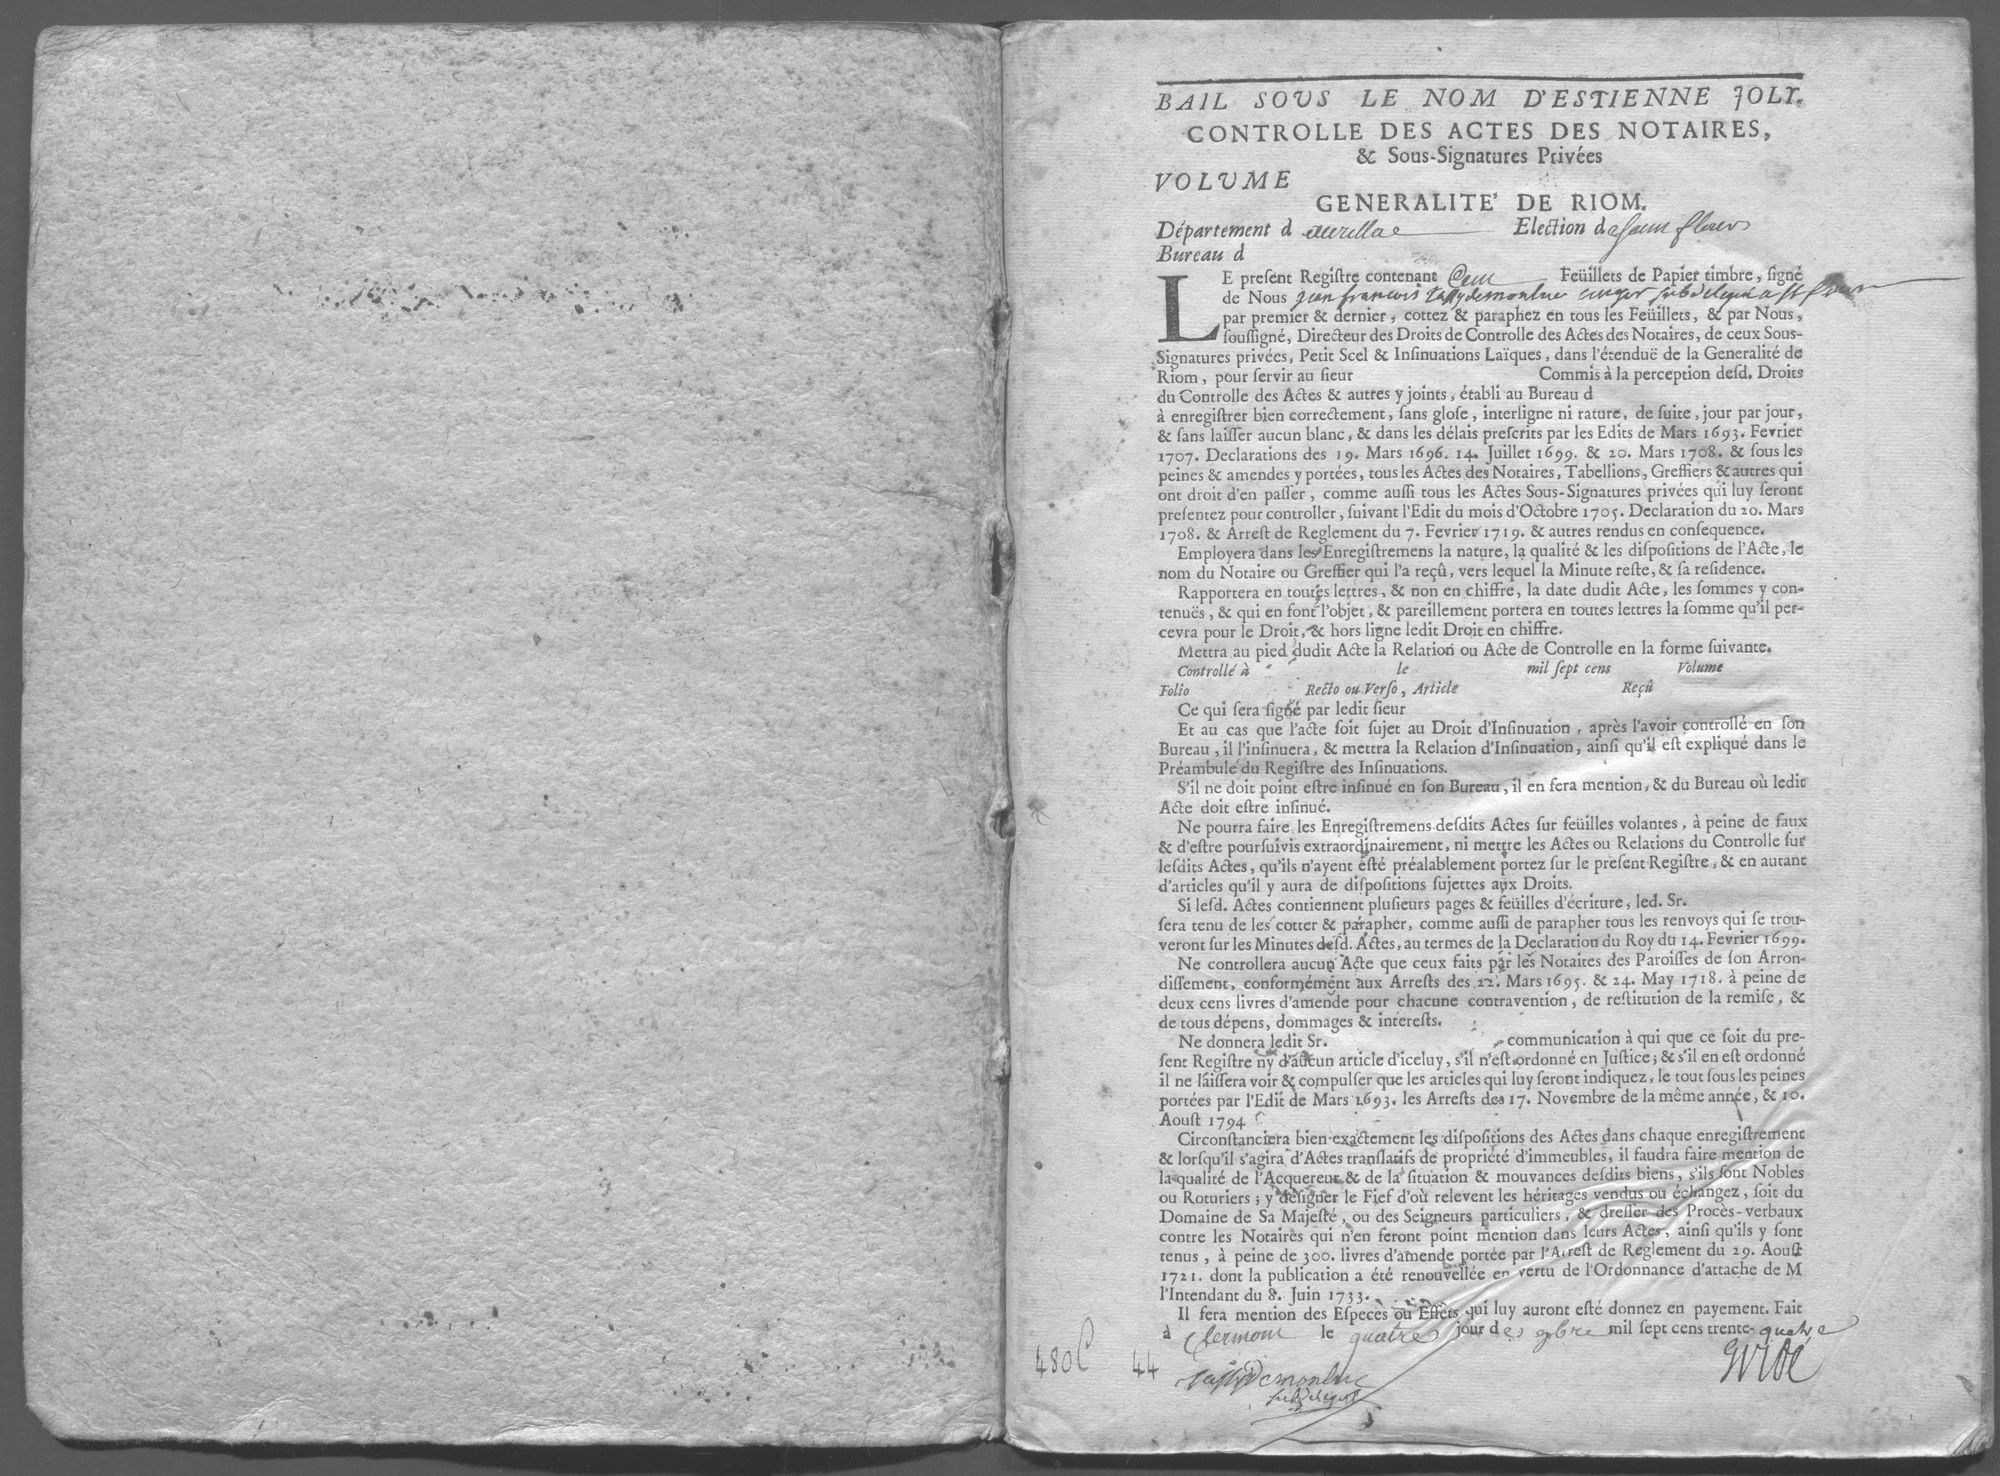 BAIL SOUS LE NOM D'ESTIENNE JOLY.
CONTROLLE DES ACTES DES NOTAIRES,
& Sous-Signatures Privées
VOLUME
GENERALITE' DE RIOM.
Département d aurillac Election de saint flour
Bureau d
LE present Registre contenant Cent Feüillets de Papier timbre, signé
de Nous jean francois subdelegué a st flour
par premier & dernier, cottez & paraphez en tous les Feüillets, & par Nous,
soussigné, Directeur des Droits de Controlle des Actes des Notaires, de ceux Sous-
Signatures privées, Petit Scel & Insinuations Laïques, dans l'étenduë de la Generalité de
Riom, pour servir au sieur Commis à la perception desd. Droits
du Controlle des Actes & autres y joints, établi au Bureau d
à enregistrer bien correctement, sans glose, interligne ni rature, de suite, jour par jour,
& sans laisser aucun blanc, & dans les délais prescrits par les Edits de Mars 1693. Fevrier
1707. Declarations des 19. Mars 1696. 14. Juillet 1699. & 20. Mars 1708. & sous les
peines & amendes y portées, tous les Actes des Notaires, Tabellions, Greffiers & autres qui
ont droit d'en passer, comme aussi tous les Actes Sous-Signatures privées qui luy seront
presentez pour controller, suivant l'Edit du mois d'Octobre 1705. Declaration du 20. Mars
1708. & Arrest de Reglement du 7. Fevrier 1719. & autres rendus en consequence.
Employera dans les Enregistremens la nature, la qualité & les dispositions de l'Acte, le
nom du Notaire ou Greffier qui l'a reçû, vers lequel la Minute reste, & sa residence.
Rapportera en toutes lettres, & non en chiffre, la date dudit Acte, les sommes y con-
tenuës, & qui en font l'objet, & pareillement portera en toutes lettres la somme qu'il per-
cevra pour le Droit, & hors ligne ledit Droit en chiffre.
Mettra au pied dudit Acte la Relation ou Acte de Controlle en la forme suivante.
Controllé à le mil sept cens Volume
Folio Recto ou Verso, Article Reçû
Ce qui sera signé par ledit sieur
Et au cas que l'acte soit sujet au Droit d'Insinuation, après l'avoir controllé en son
Bureau, il l'insinuera, & mettra la Relation d'Insinuation, ainsi qu'il est expliqué dans le
Préambule du Registre des Insinuations.
S'il ne doit point estre insinué en son Bureau, il en fera mention, & du Bureau où ledit
Acte doit estre insinué.
Ne pourra faire les Enregistremens desdits Actes sur feüilles volantes, à peine de faux
& d'estre poursuivis extraordinairement, ni mettre les Actes ou Relations du Controlle sur
lesdits Actes, qu'ils n'ayent esté préalablement portez sur le present Registre, & en autant
d'articles qu'il y aura de dispositions sujettes aux Droits.
Si lesd. Actes contiennent plusieurs pages & feüilles d'écriture, led. Sr.
sera tenu de les cotter & parapher, comme aussi de parapher tous les renvoys qui se trou-
veront sur les Minutes desd. Actes, au termes de la Declaration du Roy du 14. Fevrier 1699.
Ne controllera aucun Acte que ceux faits par les Notaires des Paroisses de son Arron-
dissement, conformément aux Arrests des 22. Mars 1695. & 24. May 1718. à peine de
deux cens livres d'amende pour chacune contravention, de restitution de la remise, &
de tous dépens, dommages & interests.
Ne donnera ledit Sr. communication à qui que ce soit du pre-
sent Registre ny d'aucun article d'iceluy, s'il n'est ordonné en Justice; & s'il en est ordonné
il ne laissera voir & compulser que les articles qui luy seront indiquez, le tout sous les peines
portées par l'Edit de Mars 1693. les Arrests des 17. Novembre de la même année, & 10.
Aoust 1794
Circonstanciera bien exactement les dispositions des Actes dans chaque enregistrement
& lorsqu'il s'agira d'Actes translatifs de propriété d'immeubles, il faudra faire mention de
la qualité de l'Acquereur & de la situation & mouvances desdits biens, s'ils sont Nobles
ou Roturiers; y designer le Fief d'où relevent les héritages vendus ou échangez, soit du
Domaine de Sa Majesté, ou des Seigneurs particuliers, & dresser des Procès-verbaux
contre les Notaires qui n'en feront point mention dans leurs Actes, ainsi qu'ils y sont
tenus, à peine de 300. livres d'amende portée par l'Arrest de Reglement du 29. Aoust
1721. dont la publication a été renouvellée en vertu de l'Ordonnance d'attache de M
l'Intendant du 8. Juin 1733.
Il fera mention des Especes ou Effets qui luy auront esté donnez en payement. Fait
à Clermont le quatre jour de 9bre mil sept cens trente-quatre
480C 44
subdelegué